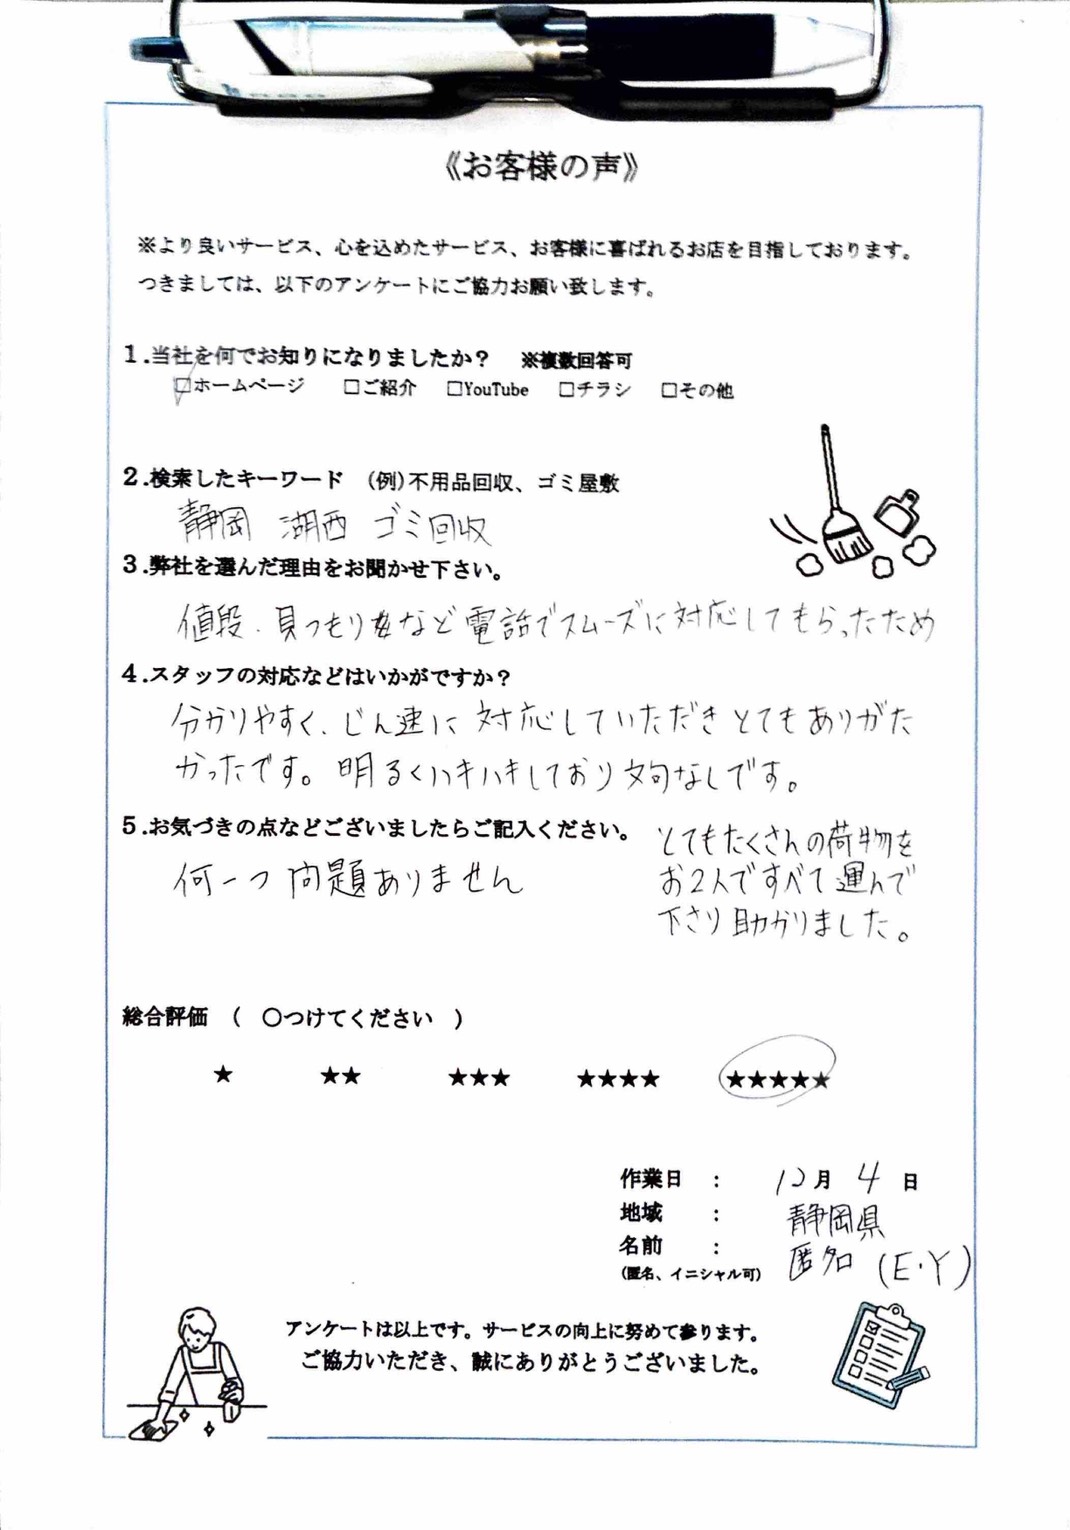 《お客様の声》
※より良いサービス、心を込めたサービス、お客様に喜ばれるお店を目指しております。
つきましては、以下のアンケートにご協力お願い致します。
1.当社を何でお知りになりましたか？ ※複数回答可
☑ホームページ □ご紹介 □YouTube □チラシ □その他
2.検索したキーワード (例)不用品回収、ゴミ屋敷
静岡 湖西 ゴミ回収
3.弊社を選んだ理由をお聞かせ下さい。
値段、見つもりなど電話でスムーズに対応してもらったため
4.スタッフの対応などはいかがですか？
分かりやすく、じん速に対応していただきとてもありがた
かったです。明るくハキハキしており文句なしです。
5.お気づきの点などございましたらご記入ください。
何一つ問題ありません
とてもたくさんの荷物を
お2人ですべて運んで
下さり助かりました。
総合評価 ( ○つけてください )
★ ★★ ★★★ ★★★★ ★★★★★
作業日 : 12月 4 日
地域 : 静岡県
名前 : 匿名 (E・Y)
(匿名、イニシャル可)
アンケートは以上です。サービスの向上に努めて参ります。
ご協力いただき、誠にありがとうございました。